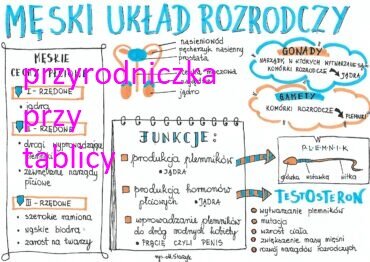 MĘSKI UKŁAD ROZRODCZY
MĘSKIE
CECHY PŁCIOWE
I - RZĘDOWE
jądra
- RZĘDOWE
drogi wyprowadzające
zewnętrzne narządy
płciowe
III - RZĘDOWE
szerokie ramiona
wąskie biodra
zarost na twarzy
nasieniowód
pęcherzyk nasienny
prostata
jądro
przyrodniczka
przy
tablicy
FUNKCJE:
produkcja plemników
JĄDRA
produkcja hormonów
płciowych
JĄDRA
wprowadzanie plemników
do dróg rodnych kobiety
PRĄCIE CZYLI PENIS
GONADY
NARZĄDY, W KTÓRYCH WYTWARZANE SĄ
KOMÓRKI ROZRODCZE
JĄDRA
GAMETY
KOMÓRKI ROZRODCZE
PLEMNIKI
PLEMNIK
główka
wstawka
witka
TESTOSTERON
wytwarzanie plemników
mutacja
wzrost ciała
zwiększenie masy mięśni
rozwój narządów płciowych